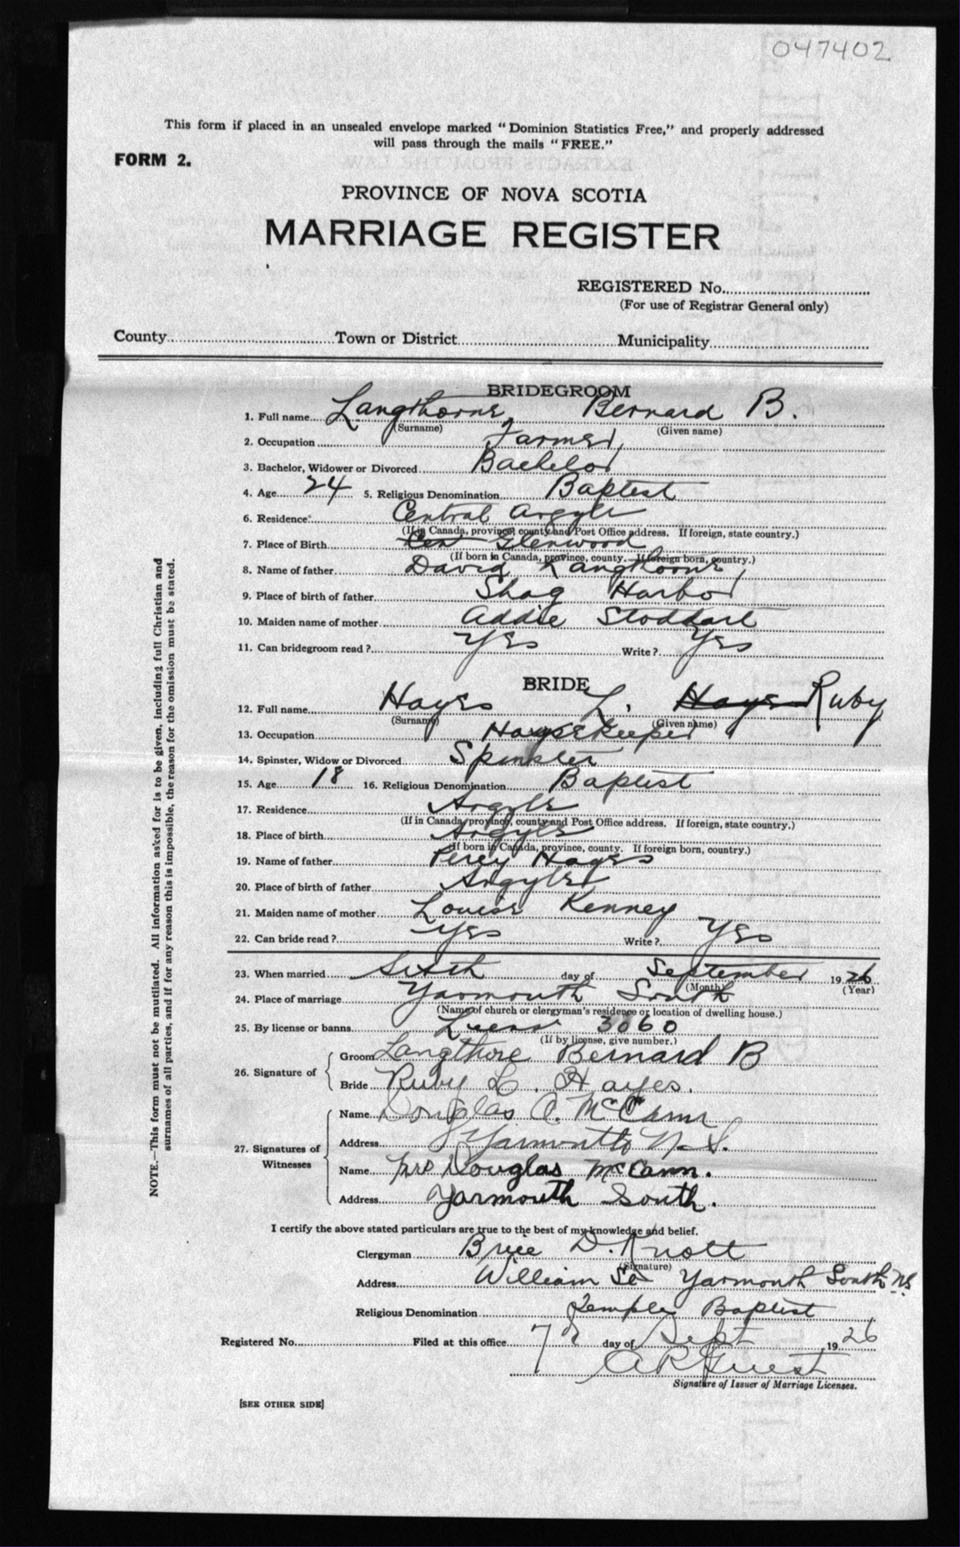 047402
This form if placed in an unsealed envelope marked "Dominion Statistics Free," and properly addressed
will pass through the mails "FREE."
FORM 2.
PROVINCE OF NOVA SCOTIA
MARRIAGE REGISTER
REGISTERED No.
(For use of Registrar General only)
County Town or District Municipality
BRIDEGROOM
1. Full name Langthorne Bernard B.
(Surname) (Given name)
2. Occupation Farmer
3. Bachelor, Widower or Divorced Bachelor
4. Age 24 5. Religious Denomination Baptist
6. Residence Central Argyle
(If in Canada, province, county and Post Office address. If foreign, state country.)
7. Place of Birth Cen Glenwood
(If born in Canada, province, county. If foreign born, country.)
8. Name of father David Langthorne
9. Place of birth of father Shag Harbor
10. Maiden name of mother Addie Stoddart
11. Can bridegroom read? Yes Write? Yes
BRIDE
12. Full name Hayes L. Hayes Ruby
(Surname) (Given name)
13. Occupation Housekeeper
14. Spinster, Widow or Divorced Spinster
15. Age 18 16. Religious Denomination Baptist
17. Residence Argyle
(If in Canada, province, county and Post Office address. If foreign, state country.)
18. Place of birth Argyle
(If born in Canada, province, county. If foreign born, country.)
19. Name of father Percy Hayes
20. Place of birth of father Argyle
21. Maiden name of mother Louise Kenney
22. Can bride read? Yes Write? Yes
23. When married Sixth day of September 1926
(Month) (Year)
24. Place of marriage Yarmouth South
(Name of church or clergyman's residence or location of dwelling house.)
25. By license or banns 3060
(If by license, give number.)
26. Signature of
Groom Langthore Bernard B
Bride Ruby L. Hayes.
27. Signatures of Witnesses
Name Douglas A. McCann
Address Yarmouth N.S.
Name Mrs Douglas McCann.
Address Yarmouth South.
I certify the above stated particulars are true to the best of my knowledge and belief.
Clergyman Brice D. Knott
(Signature)
Address William St Yarmouth South NS
Religious Denomination Temple Baptist
Registered No. Filed at this office 7 day of Sept 1926
A R Guest
Signature of Issuer of Marriage Licenses.
[SEE OTHER SIDE]
NOTE.—This form must not be mutilated. All information asked for is to be given, including full Christian and
surnames of all parties, and if for any reason this is impossible, the reason for the omission must be stated.